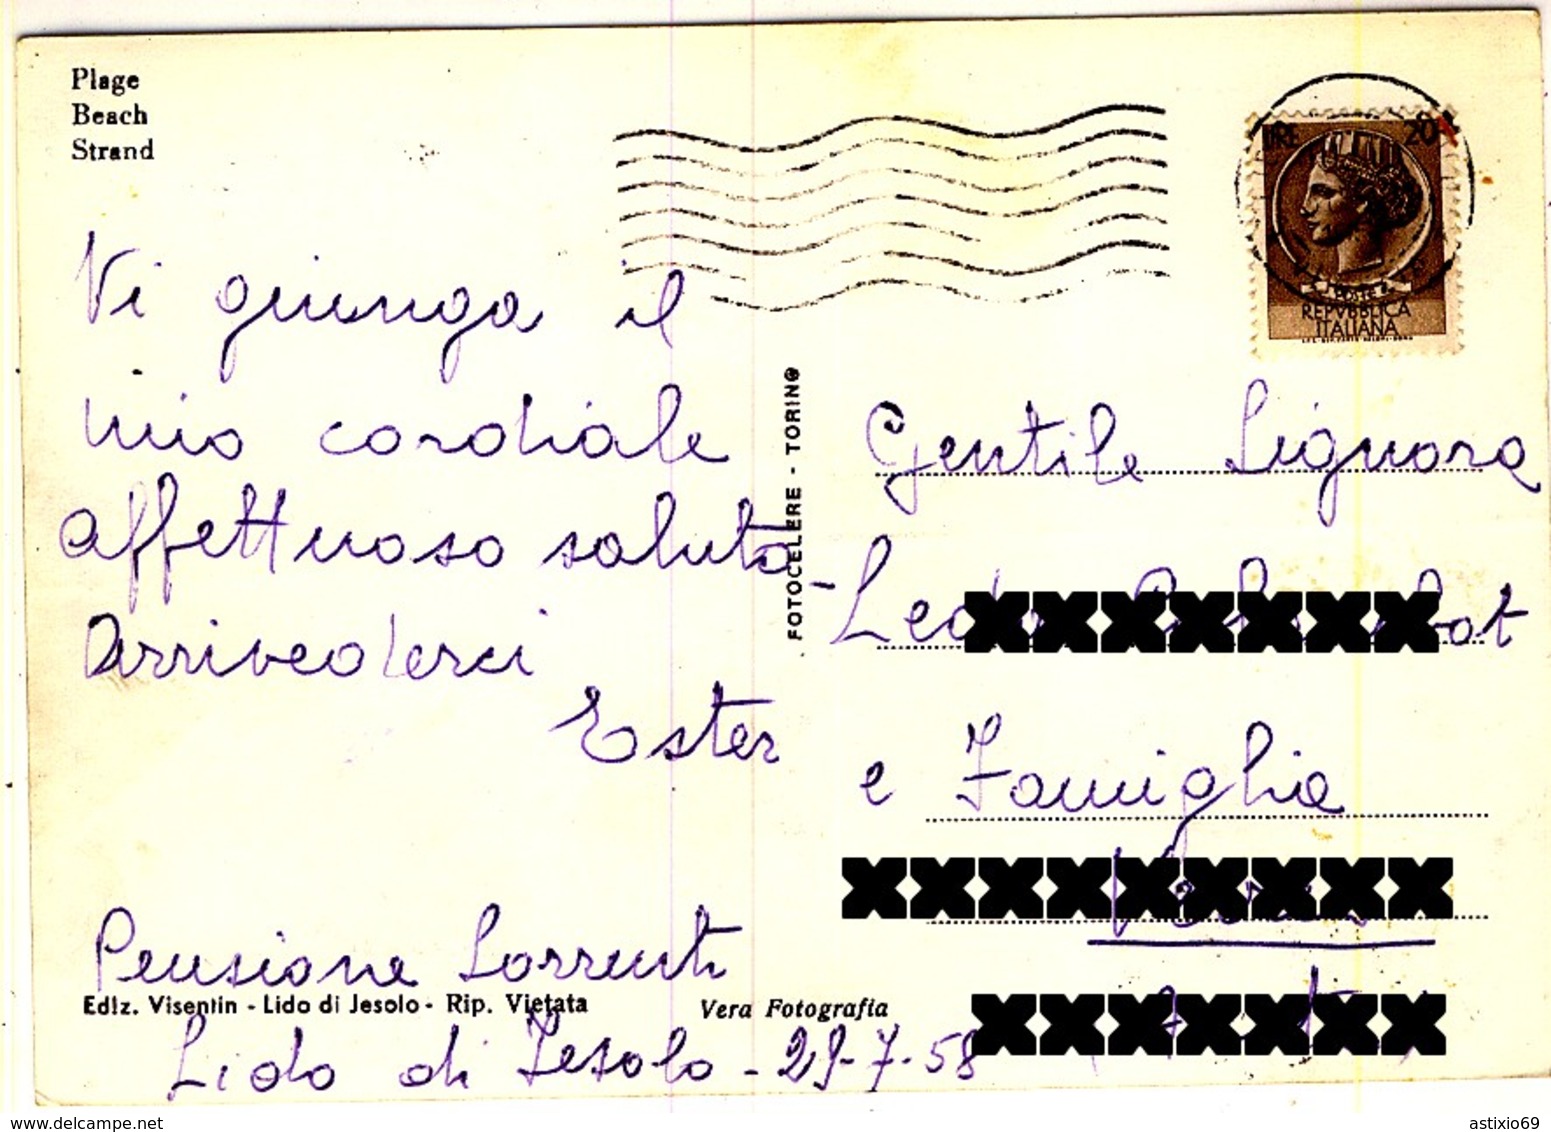 Plage
Beach
Strand
LIRE 20
POSTE
REPVBBLICA
ITALIANA
Vi giunga il
mio cordiale
affettuoso saluto -
Arrivederci
Ester
Pensione Sorrenti
Edlz. Visentin - Lido di Jesolo - Rip. Vietata
Vera Fotografia
Lido di Jesolo - 29-7-58
FOTOCELERE - TORINO
Gentile Signora
e Famiglia
delcampe.net
astixio69